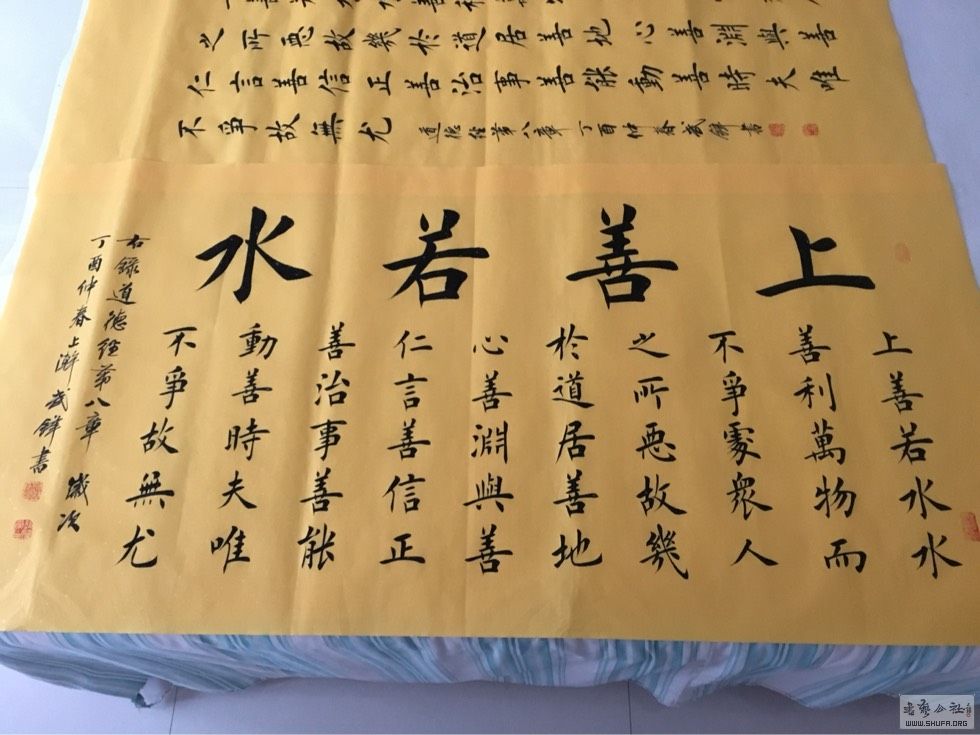 之所惡故幾於道居善地心善淵與善
仁言善信正善治事善能動善時夫唯
不爭故無尤 道德經第八章 丁酉仲春武鋒書
上善若水
上善若水水
善利萬物而
不爭處衆人
之所惡故幾
於道居善地
心善淵與善
仁言善信正
善治事善能
動善時夫唯
不爭故無尤
右錄道德經第八章 歲次
丁酉仲春上澣武鋒書
WWW.SHUFA.ORG